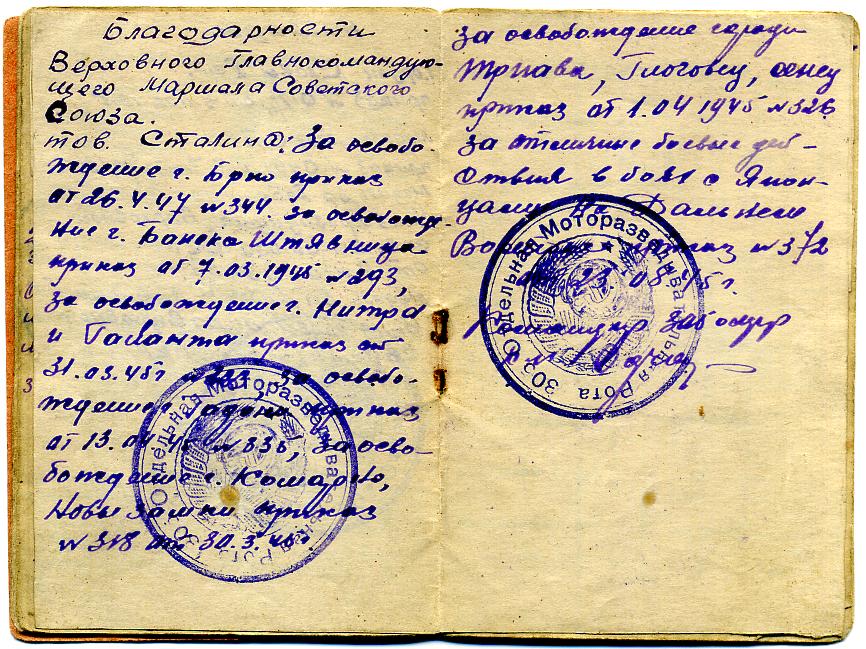 Благодарности
Верховного Главнокомандую-
щего Маршала Советского
Союза.
тов. Сталина: За освобо-
ждение г. Брно приказ
от 26.4.47 №344. за освобожде
ние г. Банска Штявница
приказ от 7.03.1945 №293,
за освобождение г. Нитра
и Галанта приказ от
31.03.45г за освобо-
ждение г. приказ
от 13.04.45 №336, За осво-
бождение г. Комарно,
Новы Замки приказ
№318 от 30.3.45г
за освобождение городи
Трнава, Глоговец, сенец
приказ от 1.04 1945 №326
за отличные боевые дей-
ствия в боях с Япон-
цами на Дальнем
приказ №372
23.08.45г.
30 Отдельная Моторазведывательная Рота
30 Отдельная Моторазведывательная Рота